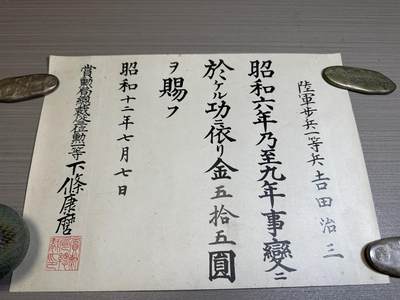 陸軍歩兵一等兵 吉田治三
昭和六年乃至九年事變ニ
於ケル功ニ依リ金五拾五圓
ヲ賜フ
昭和十二年七月七日
賞勲局總裁從三位勲一等下條康麿